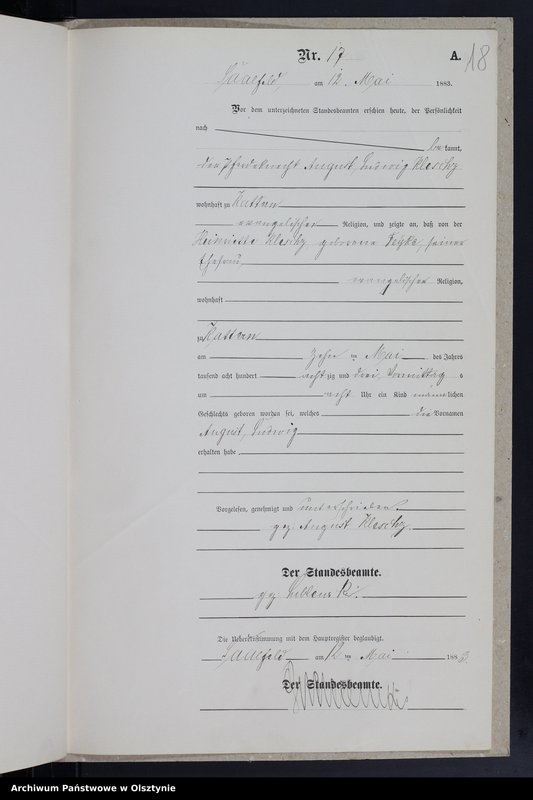 Nr. 17
A.
18
Saalfeld, am 12. Mai 1883.
Vor dem unterzeichneten Standesbeamten erschien heute, der Persönlichkeit
nach
be kannt,
der Pferdeknecht August, Ludwig Kleschz
wohnhaft zu Kattern
evangelischer Religion, und zeigte an, daß von der
Heinriette Kleschz geborene seiner
Ehefrau,
evangelischer Religion,
wohnhaft
zu Kattern
am zehn ten Mai des Jahres
tausend acht hundert acht zig und drei, Vormittag s
um acht Uhr ein Kind männ lichen
Geschlechts geboren worden sei, welches die Vornamen
August, Ludwig
erhalten habe
Vorgelesen, genehmigt und unterschrieben.
gez. August Kleschz.
Der Standesbeamte.
gez.
Die Uebereinstimmung mit dem Hauptregister beglaubigt.
Saalfeld am 12 ten Mai 188 3.
Der Standesbeamte.
Archiwum Państwowe w Olsztynie